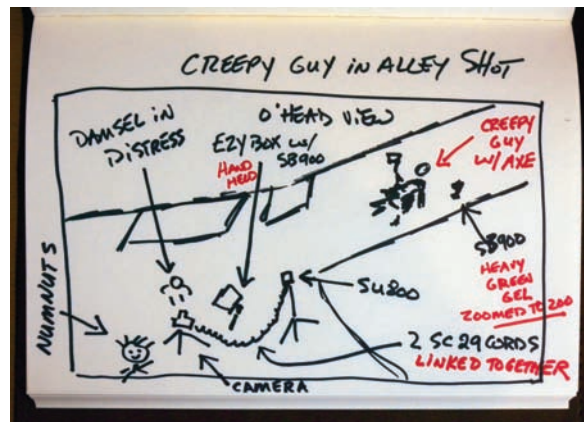 CREEPY GUY IN ALLEY SHOT
O'HEAD VIEW
DAMSEL IN
DISTRESS
EZYBOX W/
SB900
HAND
HELD
CREEPY
GUY
W/ AXE
SB900
HEAVY
GREEN
GEL
ZOOMED TO 200
SU800
NUMNUTS
2 SC29 CORDS
LINKED TOGETHER
CAMERA